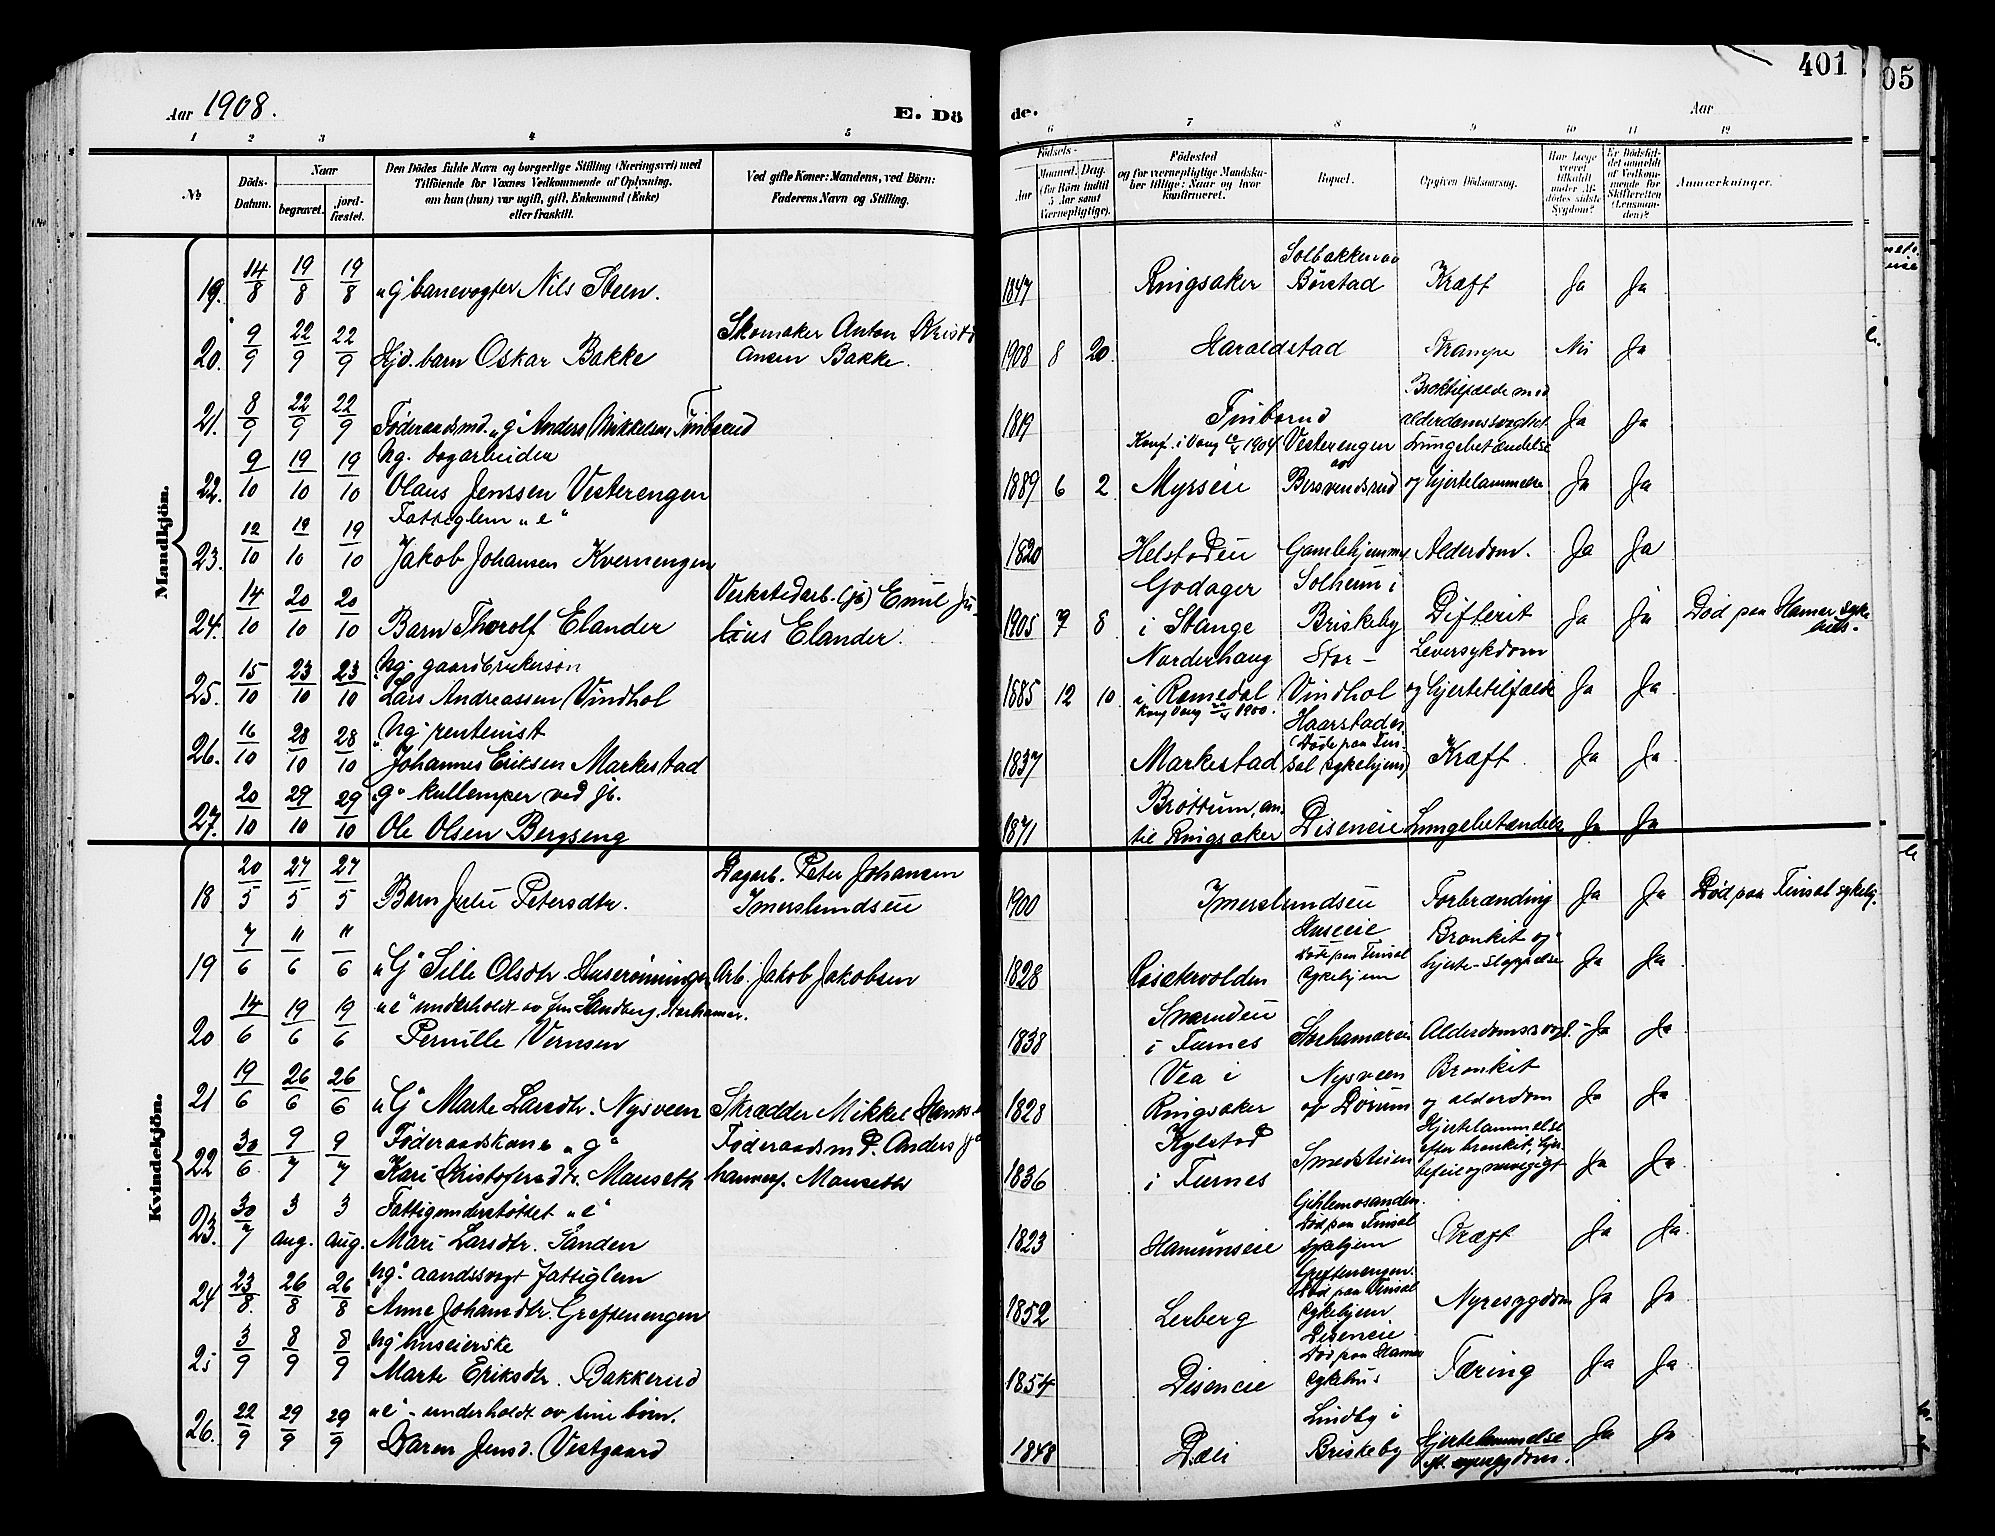 Aar 1908.
E. Dö
de.
401
05
Aar
1 2 3 4 5
6 7 8 9 10 11 12
No
Döds-
Datum.
Naar
begravet.
jord-
fæstet.
Den Dödes fulde Navn og borgerlige Stilling (Næringsvei) med
Tilföiende for Voxnes Vedkommende af Oplysning,
om han (hun) var ugift, gift, Enkemand (Enke)
eller fraskilt.
Ved gifte Koner: Mandens, ved Börn:
Faderens Navn og Stilling.
Födsels-
Aar
Maaned. Dag.
(for Börn indtil
5 Aar samt
Værnepligtige).
Födested
og for værnepligtige Mandska-
ber tillige: Naar og hvor
konfirmeret.
Bopæl.
Opgiven Dödsaarsag.
Har Læge
været
tilkaldt
under Af-
dödes sidste
Sygdom?
Er Dödsfal-
det anmeldt
af Vedkom-
mende for
Skifteretten
(Lensman-
den)?
Anmærkninger.
Mandkjön.
19. 14/8 19/8 19/8 "g" banevogter Nils Steen.
1847 Ringsaker Solbakken av
Børstad Kræft Ja Ja
20. 9/9 22/9 22/9 Hjd. barn Oskar Bakke
Skomaker Anton Kristi
ansen Bakke.
1908 8 20. Haraldstad Krampe Nei Ja
21. 8/9 22/9 22/9 Føderaadsmd. "g" Anders Mikkelsen Finborud
1819 Finborud
Broktilfælde med
alderdomssvaghet Ja Ja
22. 9/10 19/10 19/10 Ug. dagarbeider
Olaus Jenssen Vesterengen
1889 6 2 Konf. i Vang 1904
Myrseie
Vesterengen
av
Bersvendsrud
Lungebetændelse
og hjertelammelse Ja Ja
23. 12/10 19/10 19/10 Fattiglem "e"
Jakob Johansen Kvernengen
1820 Helstadeie Gamlehjemmet Alderdom. Ja Ja
24. 14/10 20/10 20/10 Barn Thorolf Elander
Verkstedarb. (jb) Emil Ju-
lius Elander.
1905 7 8 Godager
i Stange
Solheim i
Briskeby
Difterit Ja Ja Død paa Hamar syke
hus.
25. 15/10 23/10 23/10 "Ug." gaardbrukersøn
Lars Andreassen Vindhol
1885 12 10. Norderhaug
i Romedal
Konf Vang 1900.
Stor-
Vindhol
Leversykdom
og hjertetilfælde Ja Ja
26. 16/10 28/10 28/10 "Ug" rentenist
Johannes Eriksen Markestad
1837 Markestad
(Døde paa Fin-
sal sykehjem)
Kræft. Ja Ja
27. 20/10 29/10 29/10 "g" kullemper ved jb.
Ole Olsen Bergseng
1871 Brøttum, an-
til Ringsaker
Diseneie Lungebetændelse Ja Ja
Kvindekjön.
18 20/5 27/5 27/5 Barn Julie Petersdtr.
Dagarb. Peter Johansen
Imerslundseie
1900 Imerslundseie Forbrænding Ja Ja Død paa Finsal sykehj.
19 7/6 11/6 11/6 "G" Sille Olsdtr. Huserønningen Arb. Jakob Jakobsen
1828
Huseeie
Døde paa Finsal
sykehjem
Bronkit og
hjerte-slappelse Ja Ja
20 14/6 19/6 19/6 "e" underholdt av Sandberg, Storhamar.
Pernille Vernsen
1838
i Furnes
Storhamareie Alderdomssvagh. Ja Ja
21 19/6 26/6 26/6 "G" Marte Larsdtr. Nysveen Skrædder Mikkel Hanss
1828 Vea i
Ringsaker
Nysveen
av Dørum
Bronkit
og alderdom Ja Ja
22 30/6 9/7 9/7 Føderaadskone "g"
Kari Kristofersdtr. Manseth
Føderaadsmd. Anders Jo
hanness. Manseth
1836 Kylstad
i Furnes
Smedstuen
Hjertelammelse
efter bronkit,
Ja Ja
23. 30/7 3 aug. 3 aug. Fattigunderstøttet "e"
Mari Larsdtr. Sanden
1823 Hamunseie
Gihlemosanden.
Død paa Finsal
sykehjem
Kræft Ja Ja.
24 23/8. 26/8 26/8 "ug." aandssvagt fattiglem
Anne Johansdtr. Greftenengen
1852 Lerberg
Greftenengen.
Død paa Finsal
sykehjem
Nyresygdom Ja Ja
25 3/9 8/9 8/9 "ug" huseierske
Marte Eriksdtr. Bakkerud
1854 Diseneie
Diseneie
Død paa Hamar
sykehus
Tæring Ja Ja
26. 22/9 29/9 29/9 "e" - underholdt av sine børn.
Karen Jensd. Vestgaard
1848 Dæli
Lindby i
Briskeby
Hjertelammelse
Ja Ja